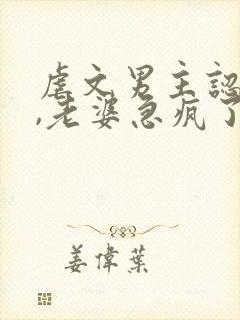 虐文男主認
,老婆急瘋了
姜偉葉